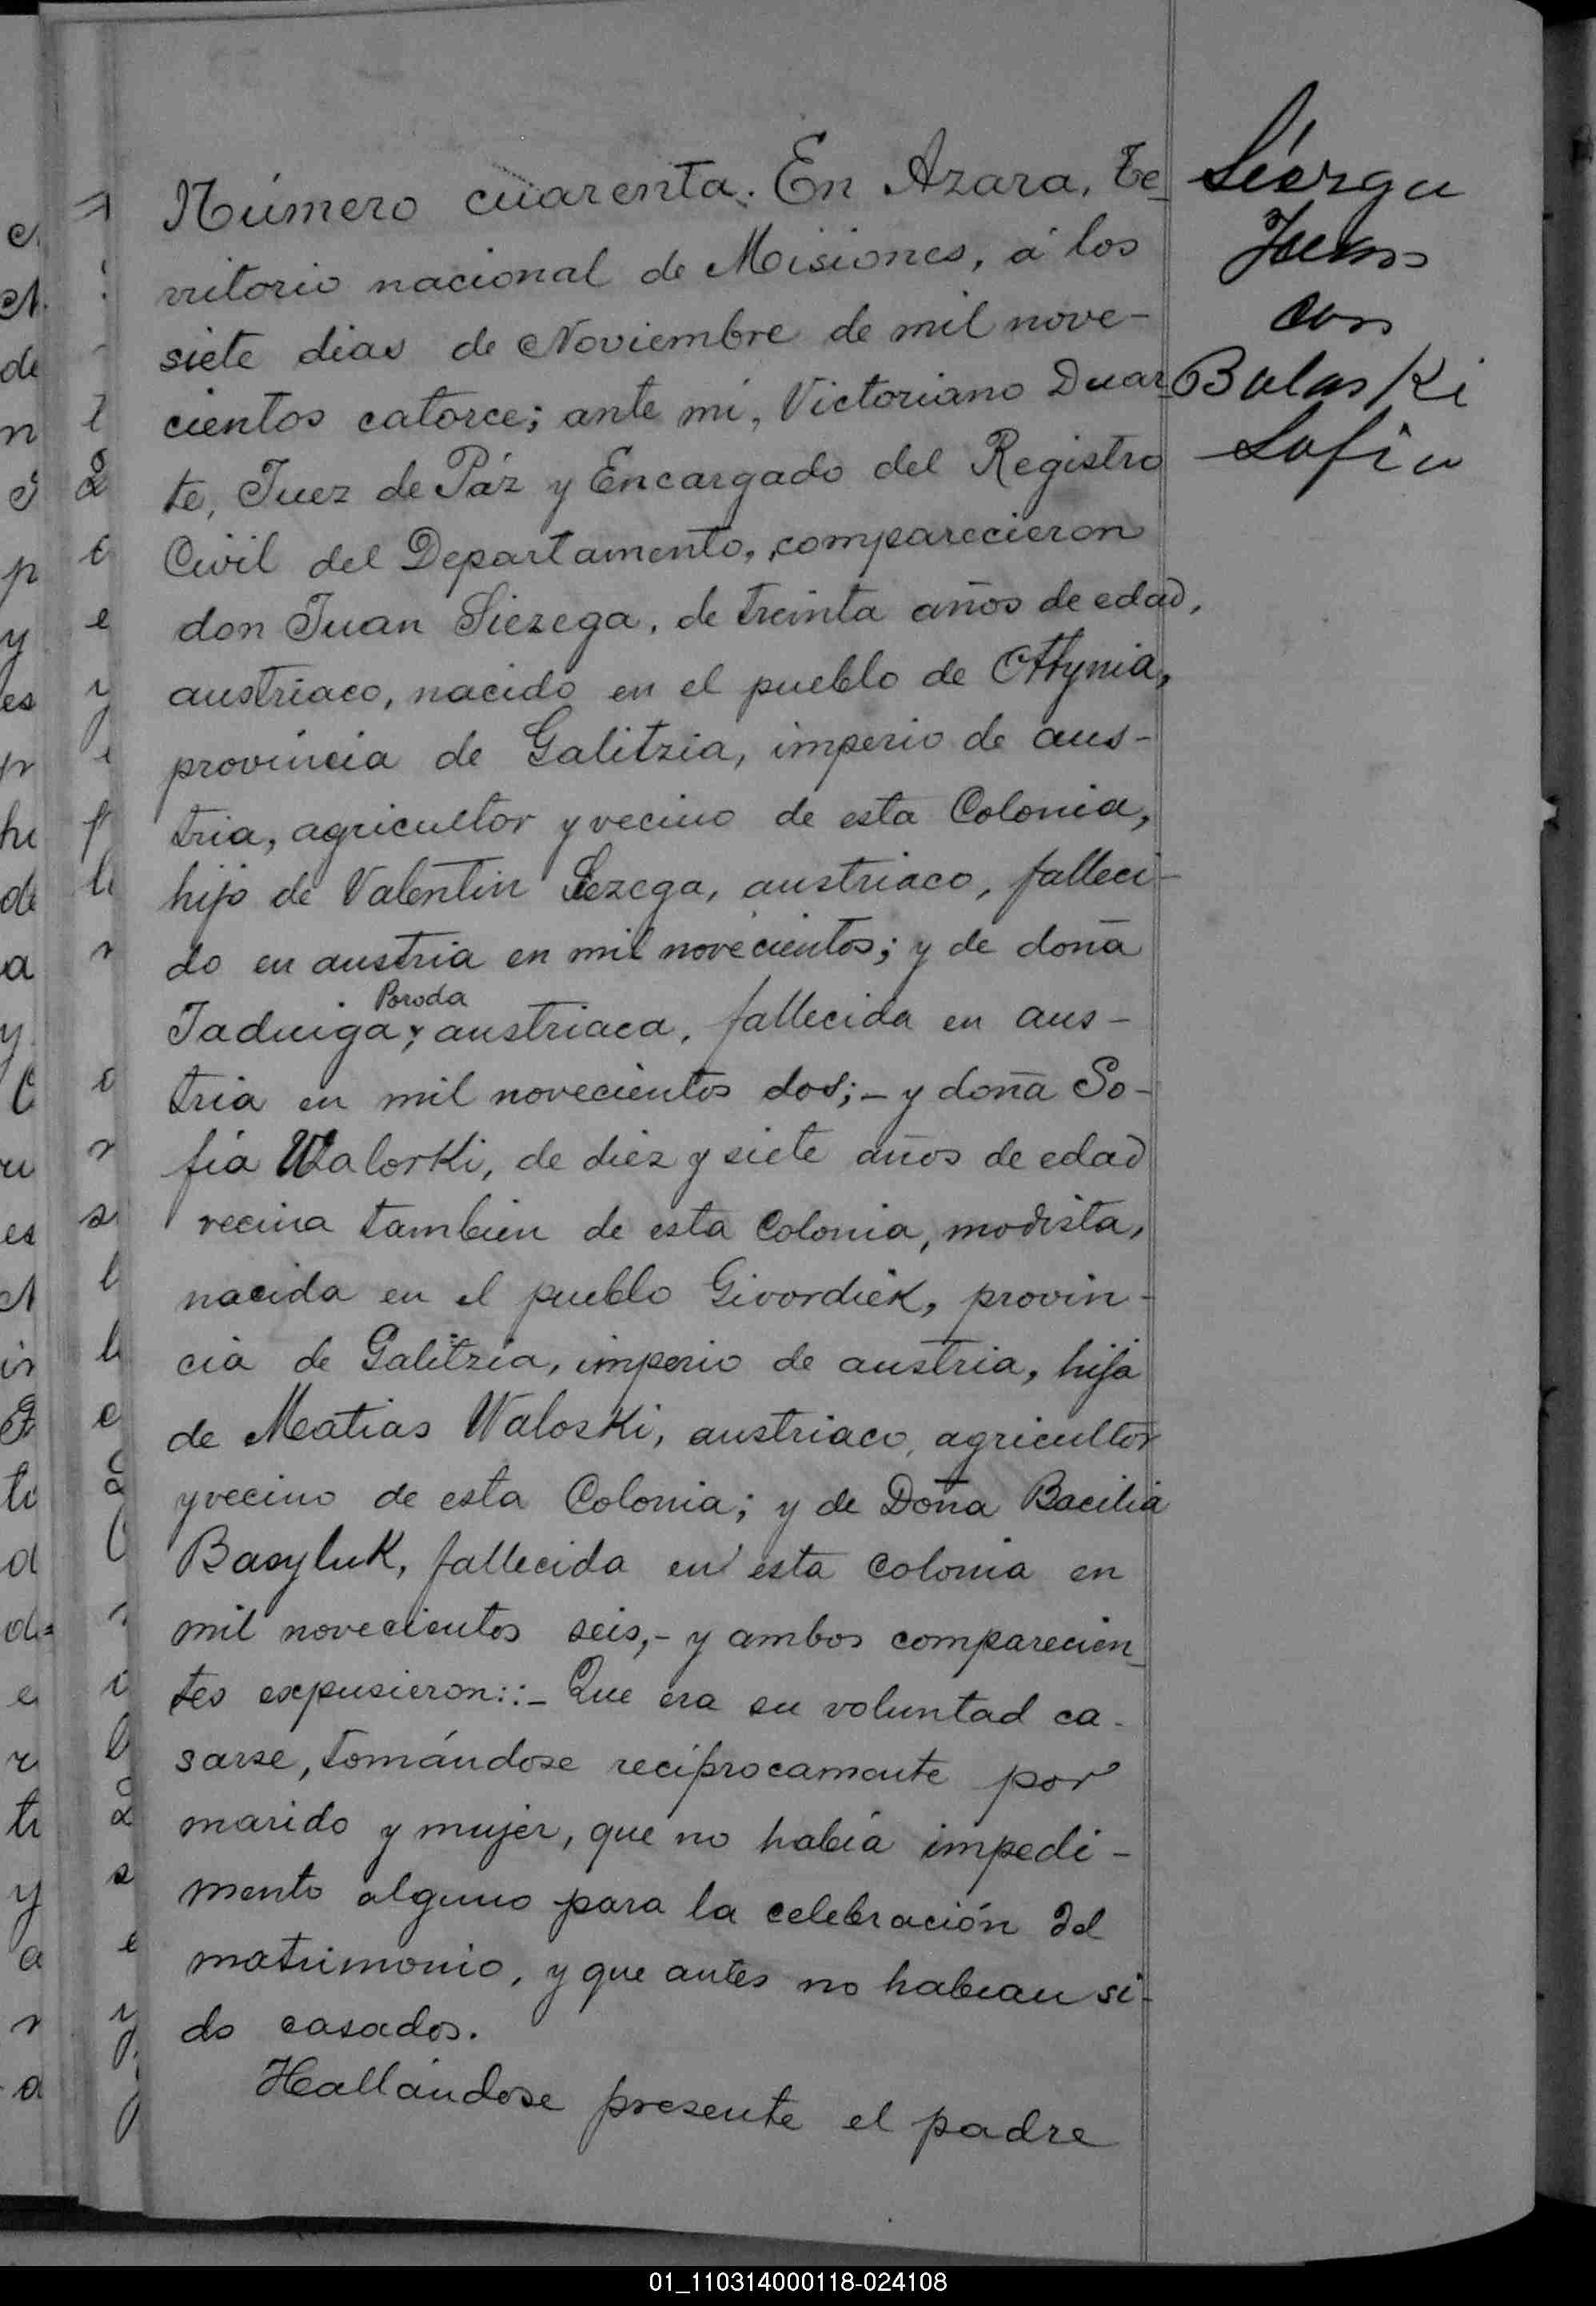 Número cuarenta. En Azara, te_
rritorio nacional de Misiones, á los
siete dias de Noviembre de mil nove-
cientos catorce; ante mi, Victoriano Duar_
te, Juez de Páz y Encargado del Registro
Civil del Departamento, comparecieron
don Juan Siezega, de treinta años de edad,
austriaco, nacido en el pueblo de Ottynia,
provincia de Galitzia, imperio de aus-
tria, agricultor y vecino de esta Colonia,
hijo de Valentin Siezega, austriaco, falleci-
do en austria en mil novecientos; y de doña
Poroda
Jaduiga, austriaca, fallecida en aus-
tria en mil novecientos dos;- y doña So-
fia Walorki, de diez y siete años de edad
vecina tambien de esta Colonia, modista,
nacida en el pueblo Givordiek, provin-
cia de Galitzia, imperio de austria, hija
de Matias Waloski, austriaco, agricultor
y vecino de esta Colonia; y de Doña Bacilia
Basyluk, fallecida en esta colonia en
mil novecientos seis,- y ambos comparecien_
tes expusieron::- Que era su voluntad ca-
sarse, tomándose recíprocamente por
marido y mujer, que no habia impedi-
mento alguno para la celebración del
matrimonio, y que antes no habian si-
do casados.
Hallándose presente el padre
Juan
con
Balaski
Sofia
01_110314000118-024108